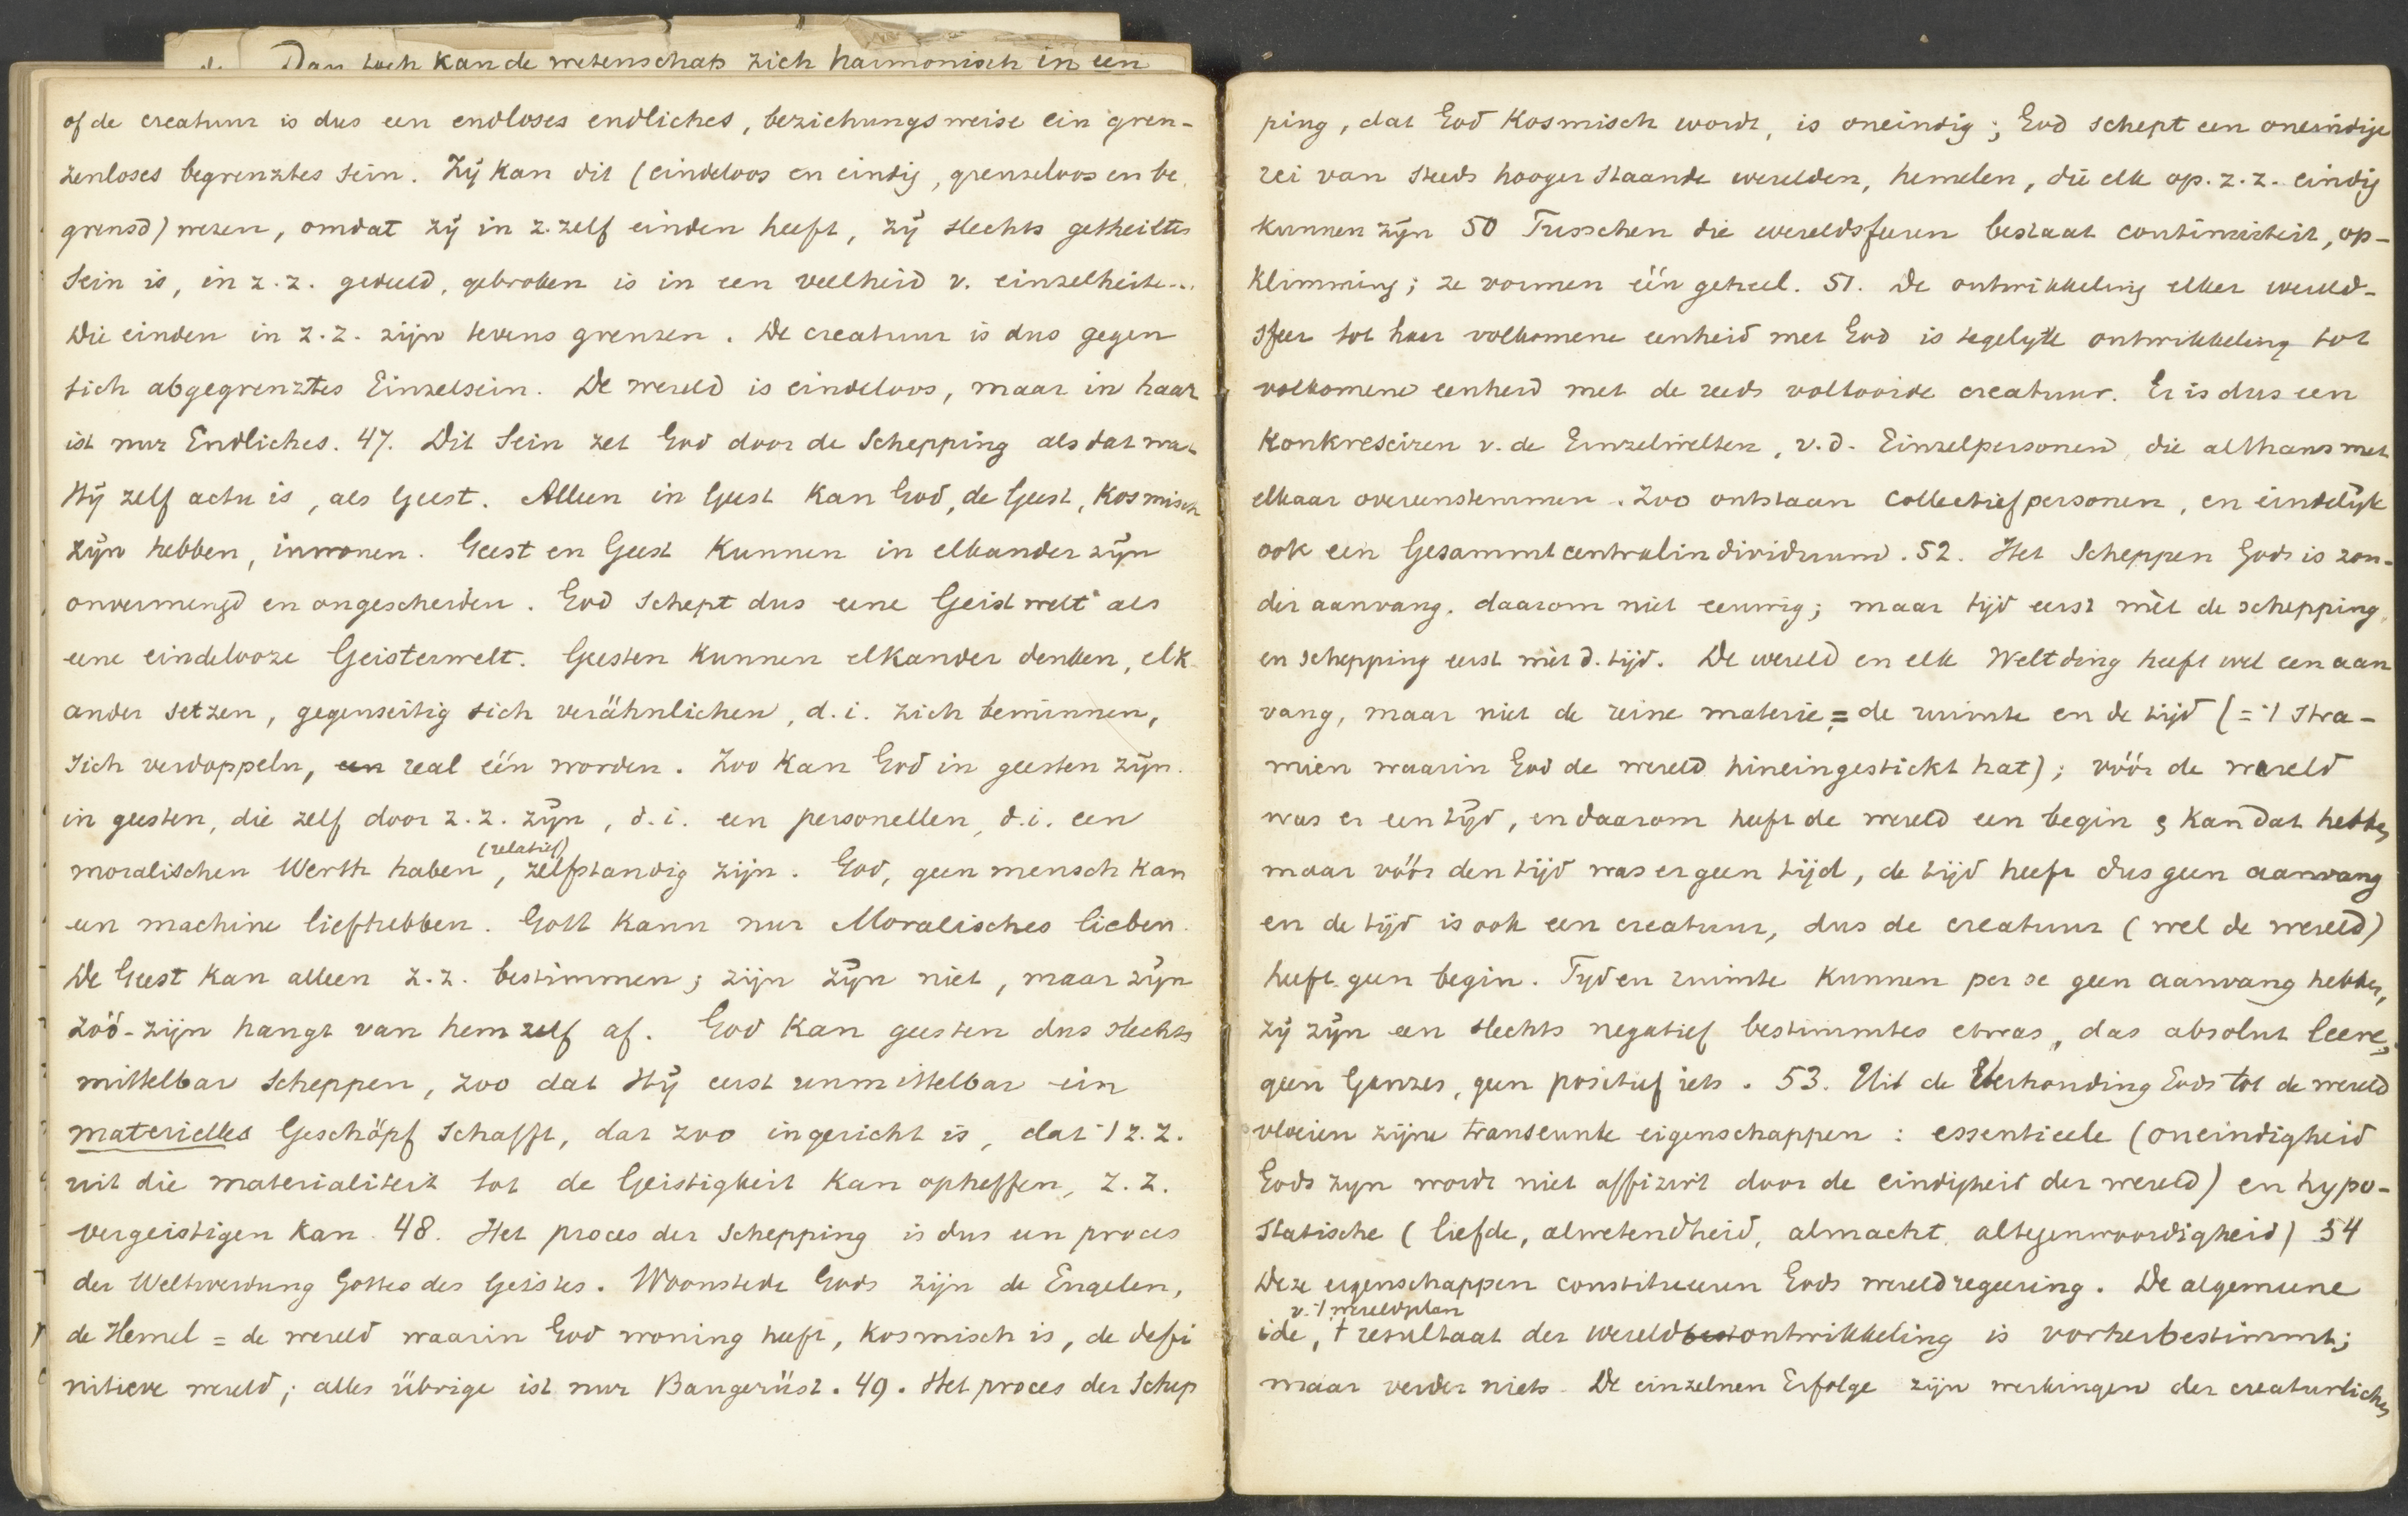 Dan toch kan de wetenschap zich harmonisch in een
of de creatuur is dus een endloses endliches, beziehungsweise ein gren-
zenloses begrenztes Sein. Zij kan dit (eindeloos en eindig, grenzeloos en be
grensd) wezen, omdat zij in z. zelf einden heeft, zij slechts getheiltes
Sein is, in z.z. gedeeld, gebroken is in een veelheid v. einzelheite...
Die einden in z.z. zijn tevens grenzen. De creatuur is dus gegen
sich abgegrenztes Einzelsein. De wereld is eindeloos, maar in haar
ist nur Endliches. 47. Dit Sein zet God door de Schepping als dat wat
Hij zelf actu is, als Geest. Alleen in Geest kan God, de Geest, kosmisch
zijn hebben, inwonen. Geest en Geest kunnen in elkander zijn
onvermengd en ongescheiden. God schept dus eene Geistwelt als
eene eindelooze Geisterwelt. Geesten kunnen elkander denken, elk
ander setzen, gegenseitig sich verähnlichen, d.i. zich beminnen,
sich verdoppeln, een real één worden. Zoo kan God in geesten zijn.
in geesten, die zelf door z.z. zijn, d.i. een personellen, d.i. een
(relatief)
moralischen Werth haben, zelfstandig zijn. God, geen mensch kan
een machine liefhebben. Gott kann nur Moralisches lieben.
De Geest kan alleen z.z. bestimmen; zijn zijn niet, maar zijn
zóó-zijn hangt van hem zelf af. God kan geesten dus slechts
mittelbar scheppen, zoo dat Hij eerst unmittelbar ein
materielles Geschöpf schafft, dat zoo ingericht is, dat 't z.z.
uit die materialiteit tot de Geistigkeit kan opheffen, z.z.
vergeistigen kan. 48. Het proces der Schepping is dus een proces
der Weltwerdung Gottes des Geistes. Woonstede Gods zijn de Engelen,
de Hemel = de wereld waarin God woning heeft, kosmisch is, de defi
nitieve wereld; alles übrige ist nur Baugerüst. 49. Het proces der Schep
ping, dat God kosmisch wordt, is oneindig; God schept een oneindige
rei van steeds hooger staande werelden, hemelen, die elk op. z.z. eindig
kunnen zijn 50 Tusschen die wereldsferen bestaat continuiteit, op-
klimming; ze vormen één geheel. 51. De ontwikkeling elker wereld-
sfeer tot haar volkomene eenheid met God is tegelijk ontwikkeling tot
volkomene eenheid met de reeds voltooide creatuur. Er is dus een
Konkresciren v. de Einzelwelten, v.d. Einzelpersonen, die althans met
elkaar overeenstemmen. Zoo ontstaan collectiefpersonen, en eindelijk
ook een Gesammtcentralindividuum. 52. Het Scheppen Gods is zon-
der aanvang. daarom niet eeuwig; maar tijd eerst mèt de schepping,
en schepping eerst mèt d. tijd. De wereld en elk Weltding heeft wel een aan
vang, maar niet de reine materie, = de ruimte en de tijd (= 't stra-
mien waarin God de wereld hineingestickt hat); vóór de wereld
was er een tijd, en daarom heeft de wereld een begin & kan dat hebben,
maar vóór den tijd was er geen tijd, de tijd heeft dus geen aanvang
en de tijd is ook een creatuur, dus de creatuur (wel de wereld)
heeft geen begin. Tijd en ruimte kunnen per se geen aanvang hebben,
zij zijn een slechts negatief bestimmtes etwas, das absolut leere,
geen Ganzes, geen positief iets. 53. Uit de Verhouding Gods tot de wereld
vloeien zijne transeunte eigenschappen: essentieele (oneindigheid
Gods zijn wordt niet affizirt door de eindigheid der wereld) en hypo-
statische (liefde, alwetendheid, almacht, altegenwoordigheid) 54
Deze eigenschappen constitueeren Gods wereldregeering. De algemeene
v. 't wereldplan
ide, 't resultaat der wereldbestontwikkeling is vorherbestimmt;
maar verder niets. De einzelnen Erfolge zijn werkingen der creaturliches